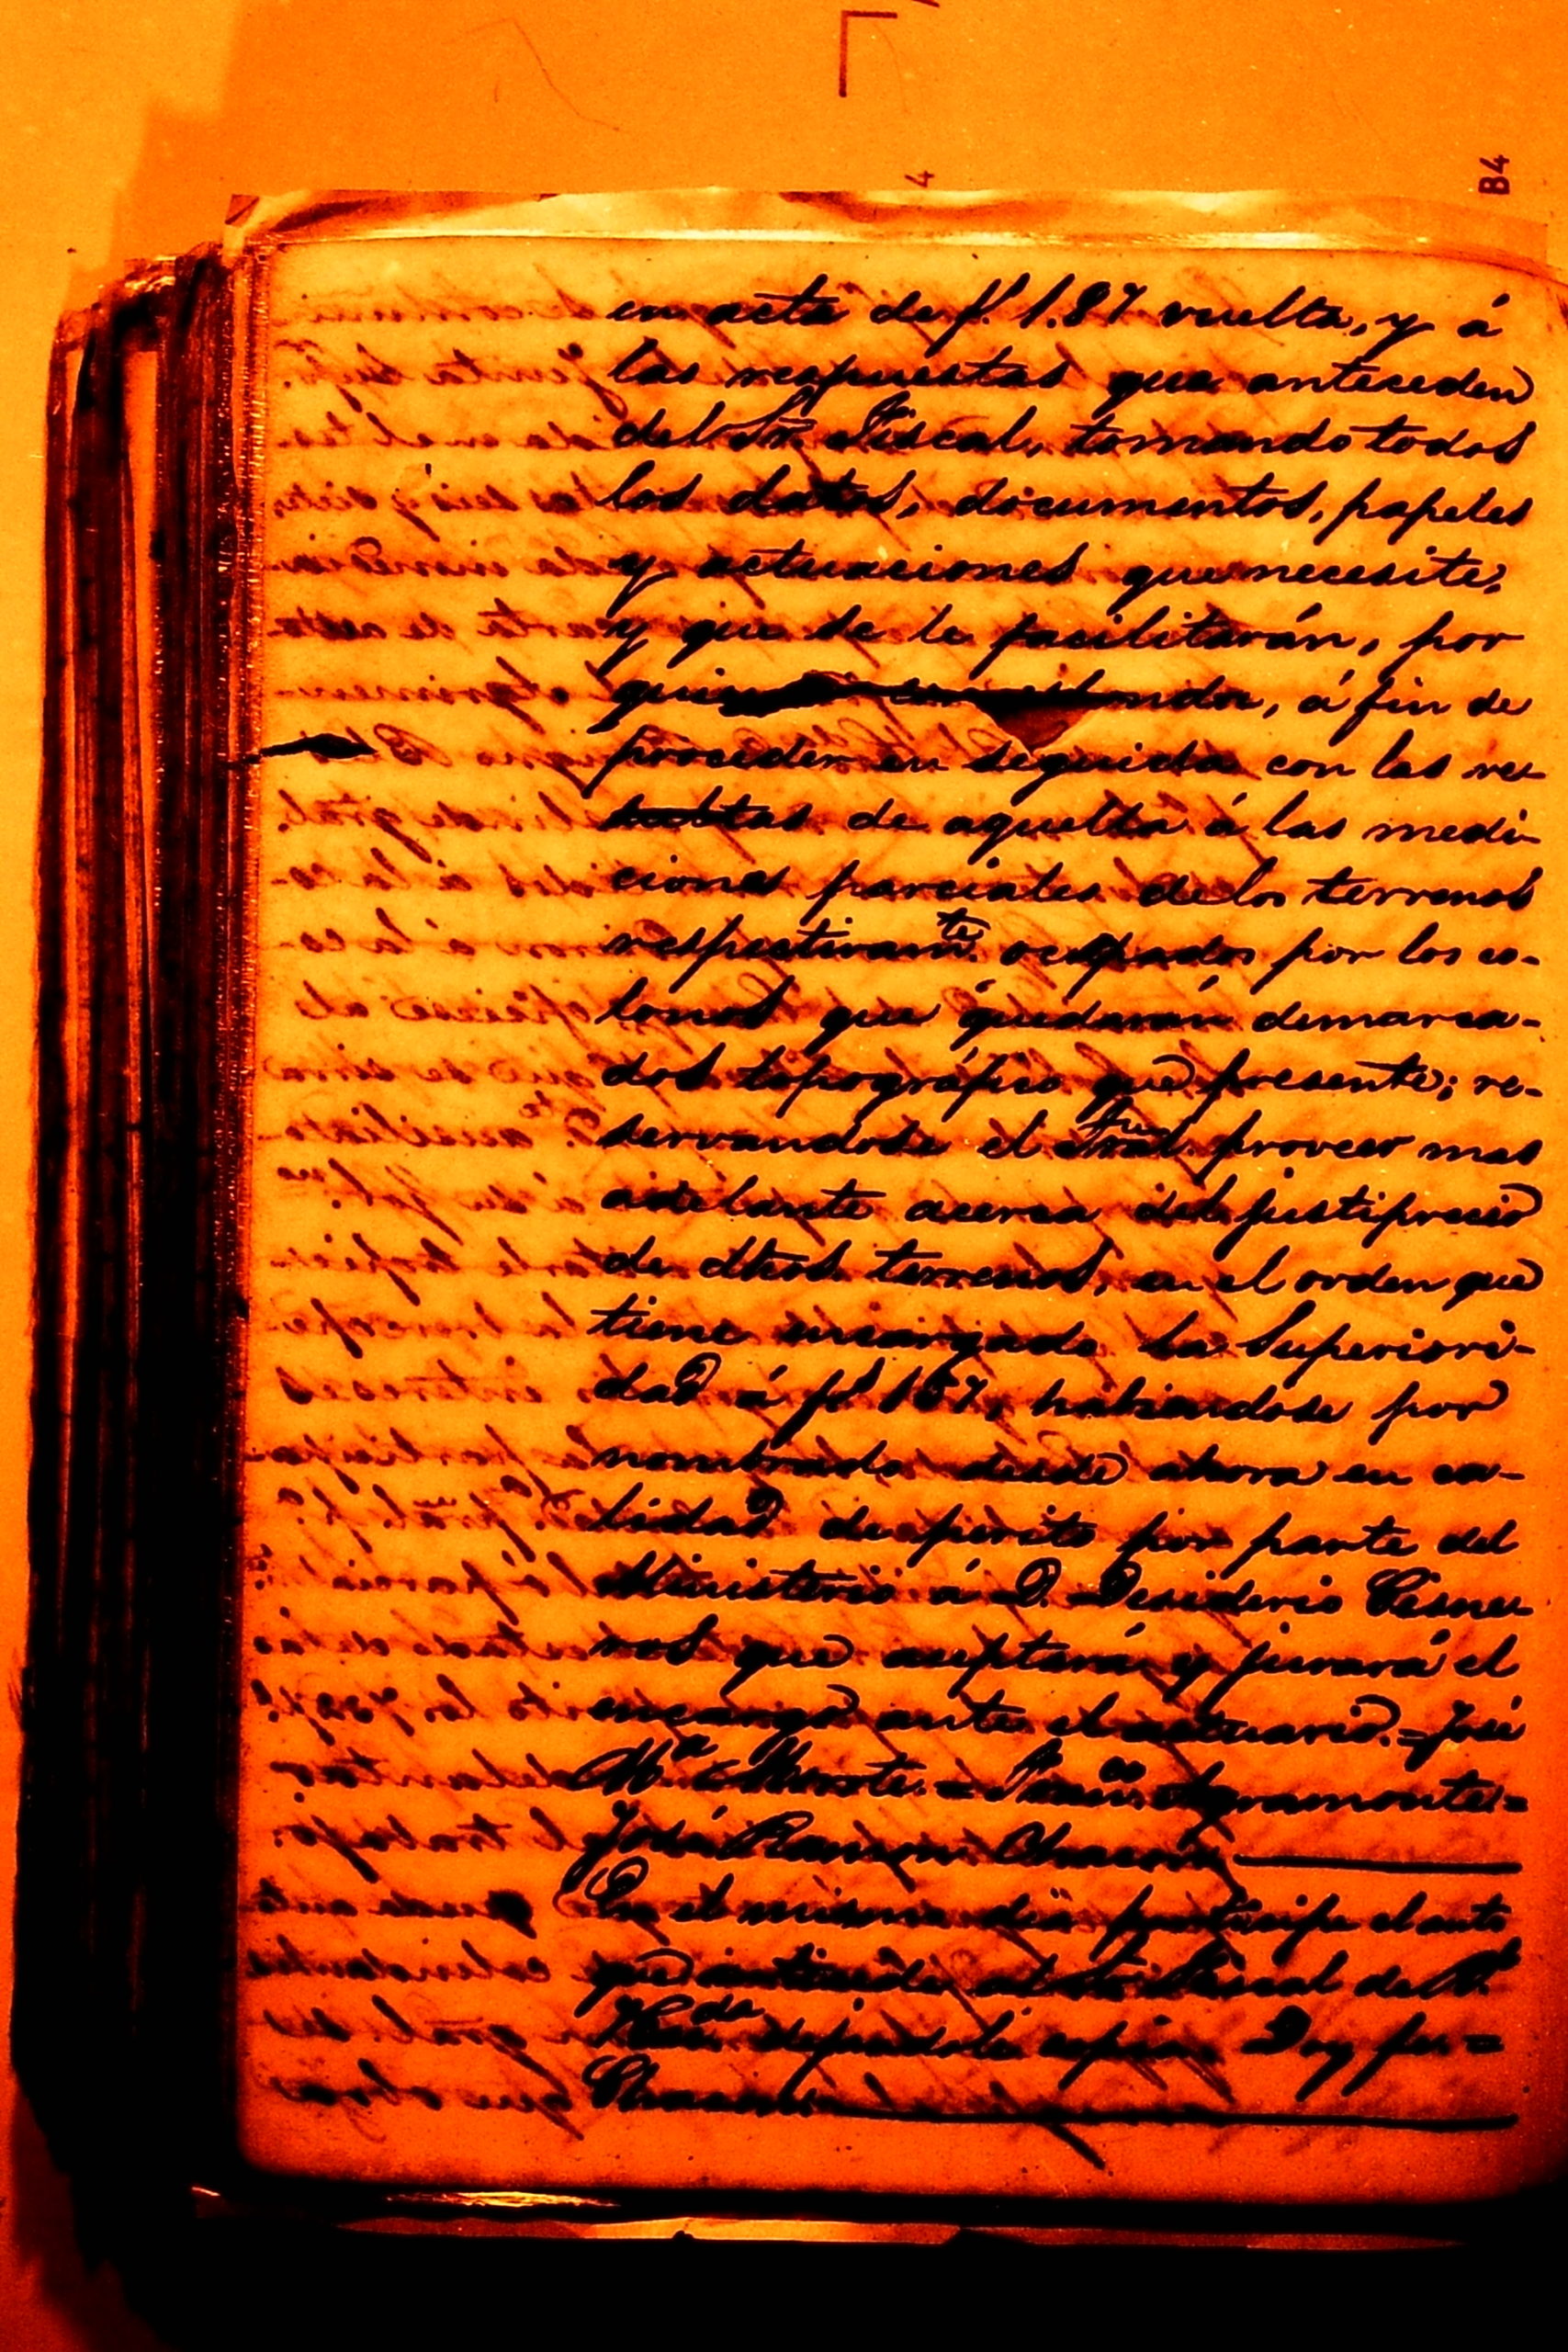 4
B4
en acta de f. 1.87 vuelta, y á
las respuestas que anteceden
del Sr. Fiscal, tomando todos
los datos, documentos, papeles
y actuaciones que necesite,
y que se le facilitarán, por
quien corresponda, á fin de
proceder en seguida con las re-
sultas de aquella á las medi-
ciones parciales de los terrenos
respectivamte. ocupados por los co-
lonos que quedarán demarca-
dos topográfico que presente; re-
servandose el tral. proveer mas
adelante acerca del justiprecio
de dhos. terrenos, en el orden que
tiene encargado la Superiori-
dad á fs 167, habiendose por
nombrado desde ahora en ca-
lidad de perito por parte del
Ministerio á D. Desiderio Cisne-
ros que aceptará y jurará el
encargo ante el actuario.=José
Ma. =Franco. Agramonte.=
José Ramon
En el mismo dia participe el auto
que antecede al Sor. Fiscal de Rl.
Hda. dejandole copia. Doy fee=